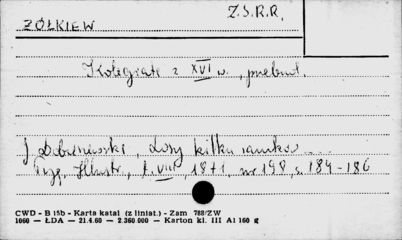 Z.S.R.R.
ŻÓŁKIEW
Kolegiata z XVI w., przebud.
J. Dobrzniewski, Losy kilku zamków ....
Tyg. Illustr., t. VIII, 1871, nr 198, s. 184-186
CWD - B 15b - Karta katal (z liniat.) - Zam 788/ZW
1060 - ŁDA - 21.4.60 - 2.360.000 - Karton kl. III A1 160 g